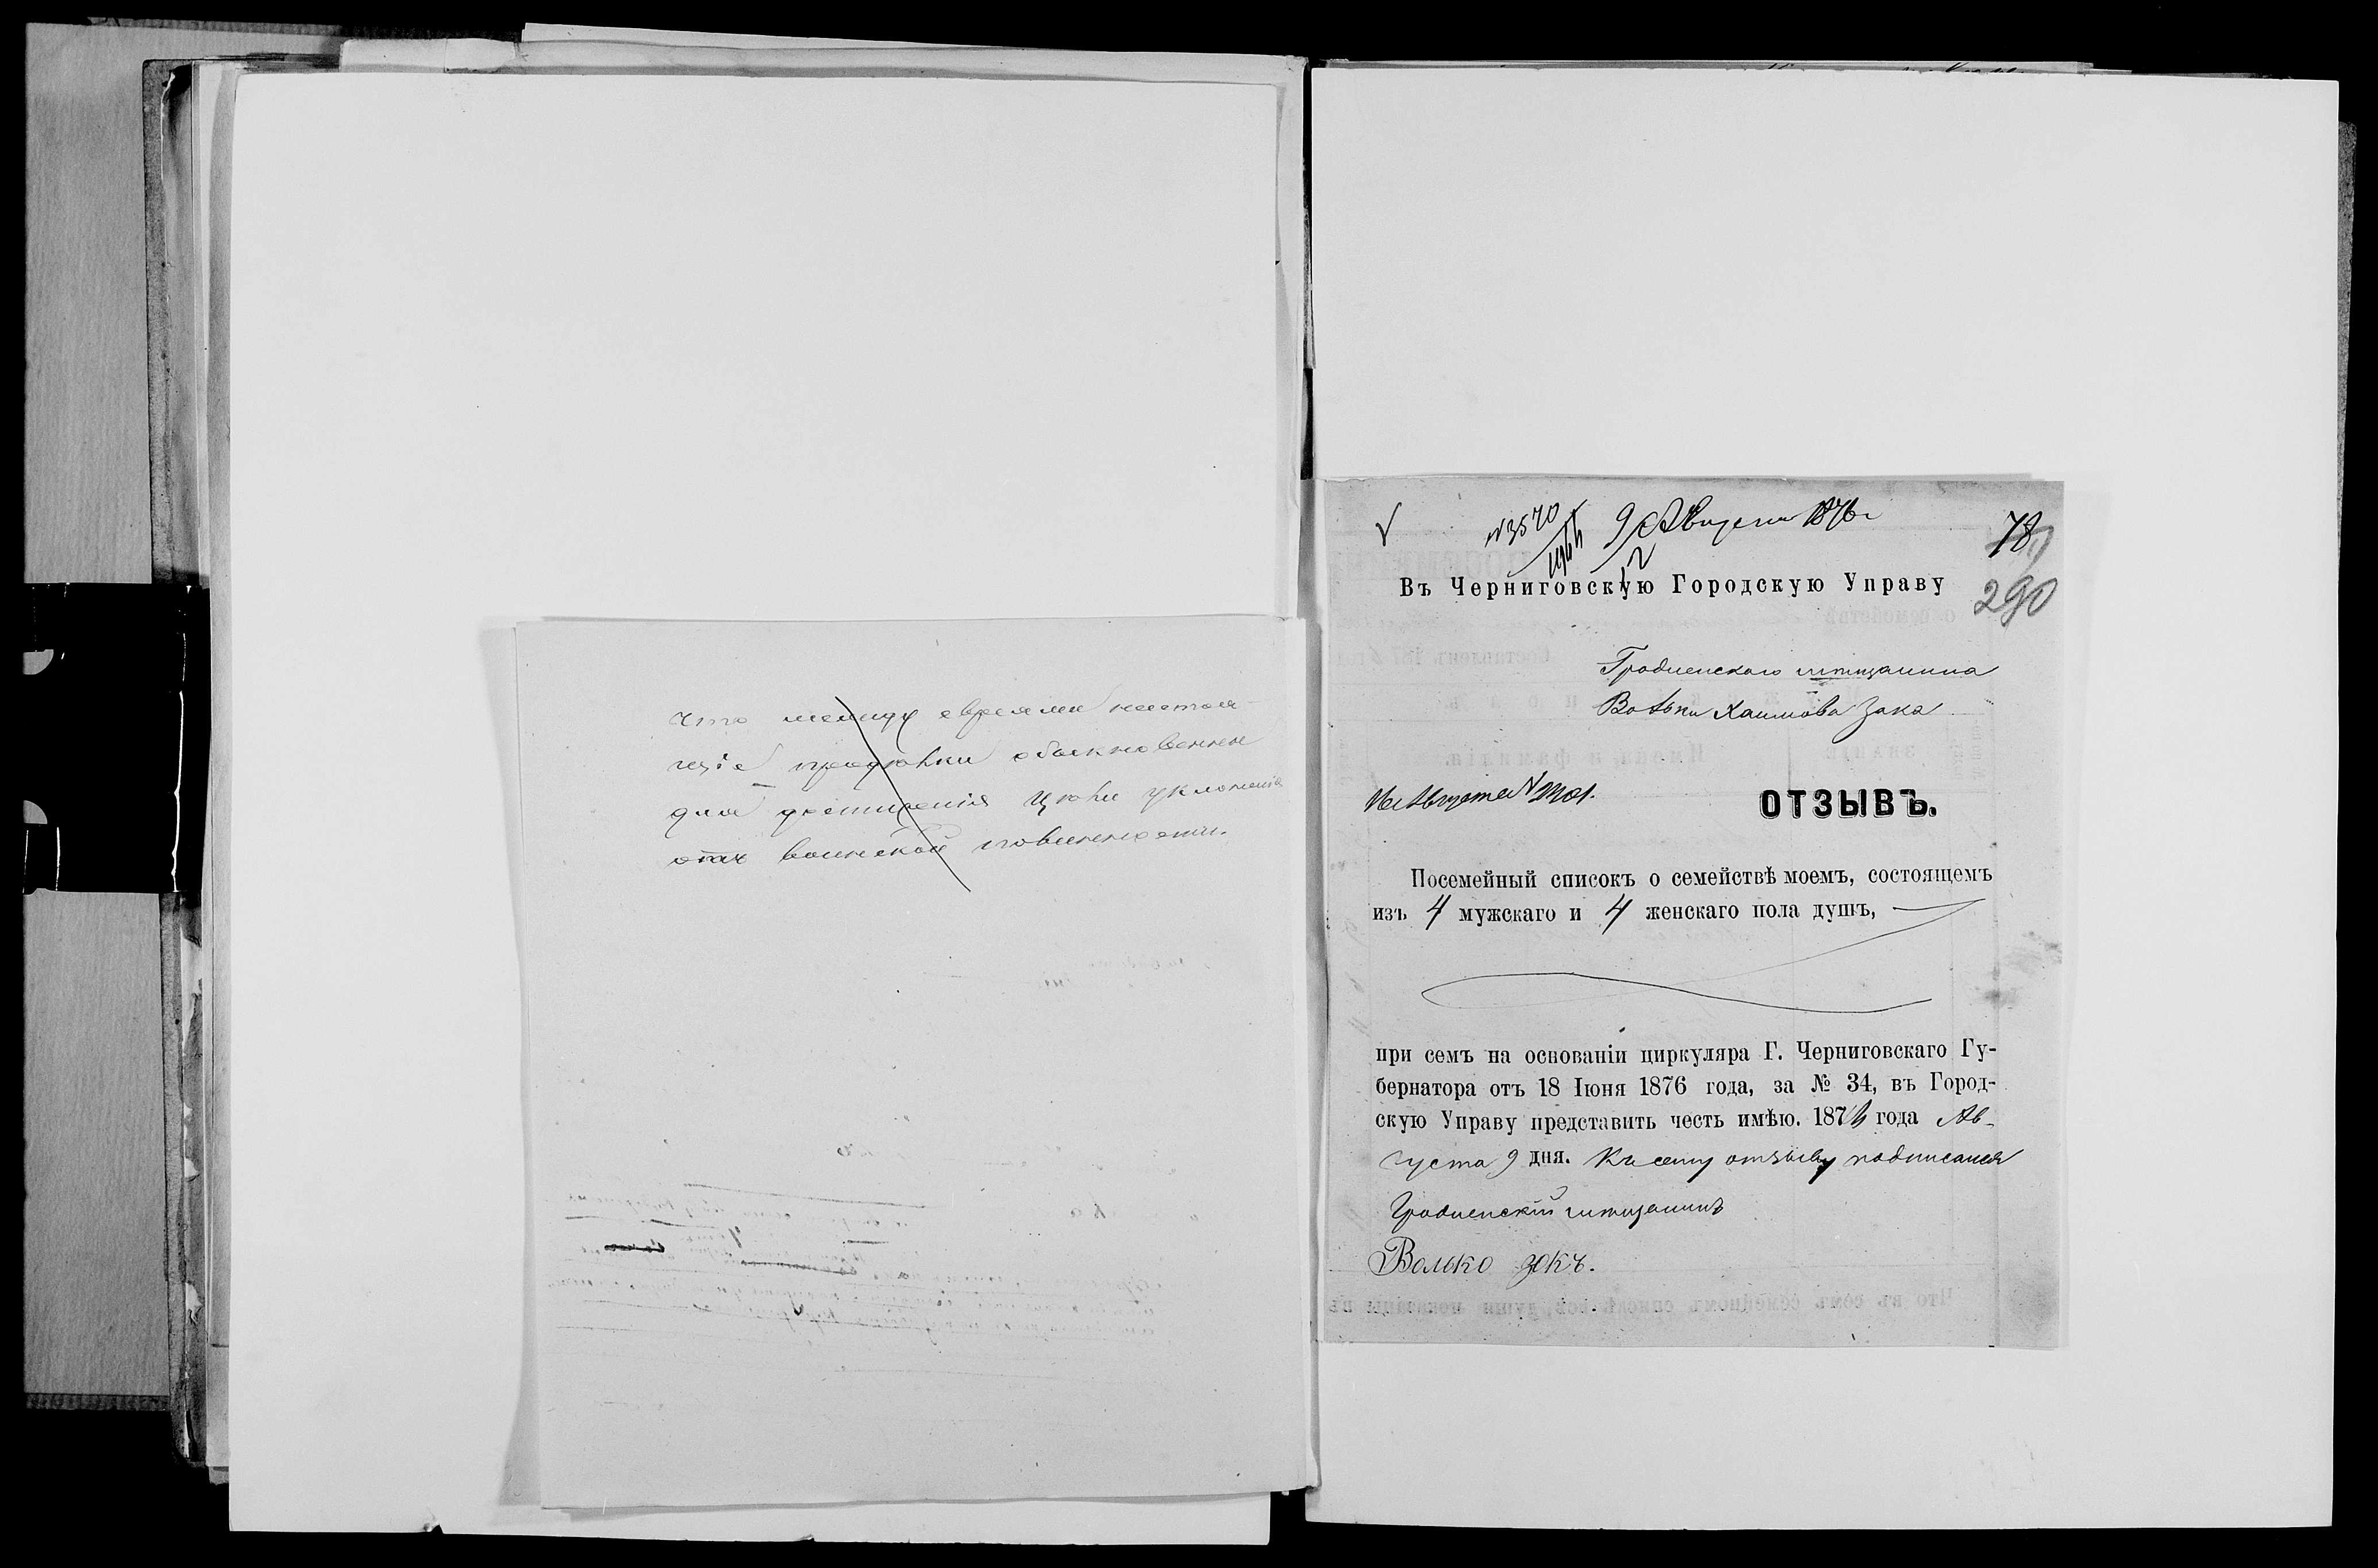 что между евреями настоя-
щіе продѣлки обыкновенны
для достиженія цѣли уклоненія
отъ воинской повинности.
№ 3570
9 Августа 1876 г
78
290
Въ Черниговскую Городскую Управу
Гродненскаго мѣщанина
Вольки Хаимова Зака
Августа №
ОТЗЫВЪ.
Посемейный списокъ о семействѣ моемъ, состоящемъ
изъ 4 мужскаго и 4 женскаго пола душъ,
при семъ на основаніи циркуляра Г. Черниговскаго Гу-
бернатора отъ 18 Іюня 1876 года, за № 34, въ Город-
скую Управу представить честь имѣю. 1876 года Ав-
густа 9 дня. Къ сему отзыву подписался
Гродненскій мѣщанинъ
Волько Закъ.